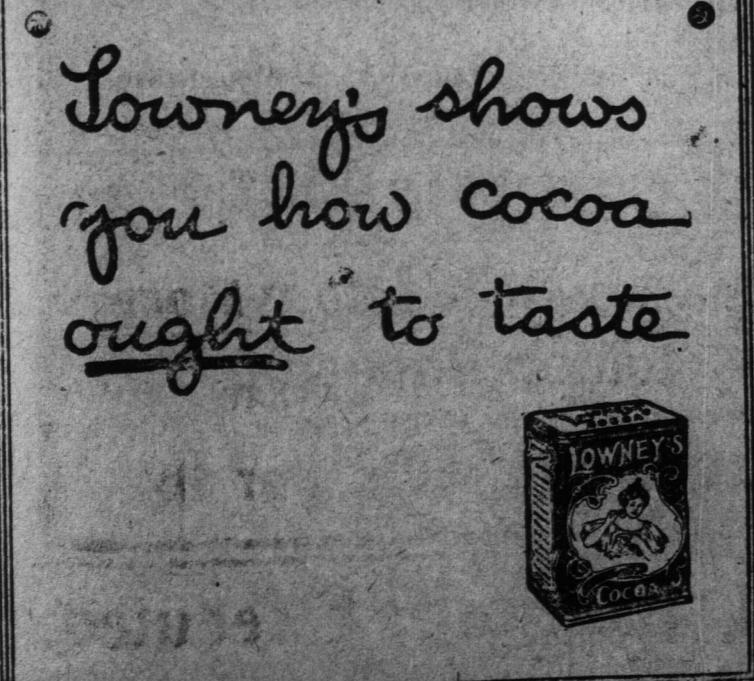 Lowney's shows
you how cocoa
ought to taste
LOWNEY'S
COCOA